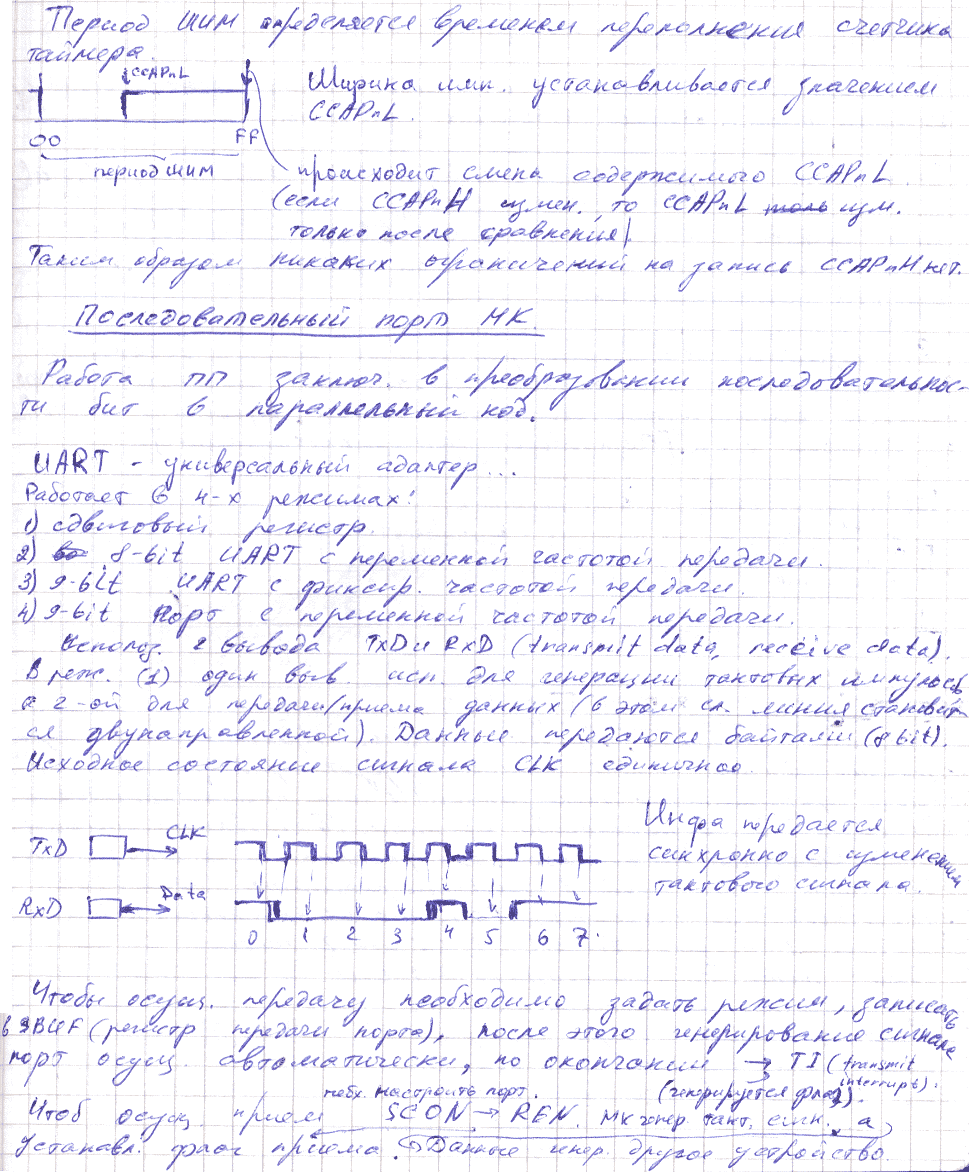 Период ШИМ определяется временем переполнения счетчика
таймера.
CCAPnL
Ширина имп. устанавливается значением
CCAPnL.
00 FF
период ШИМ
происходит смена содержимого CCAPnL
(если CCAPnH измен., то CCAPnL изм.
только после сравнения).
Таким образом никаких ограничений на запись CCAPnH нет.
Последовательный порт МК.
Работа ПП заключ. в преобразовании последовательнос-
ти бит в параллельный код.
UART - универсальный адаптер...
Работает в 4-х режимах:
1) сдвиговый регистр.
2) 8-bit UART с переменной частотой передачи.
3) 9-bit UART с фиксир. частотой передачи.
4) 9-bit порт с переменной частотой передачи.
Использ. 2 вывода TxD и RxD (transmit data, receive data).
В реж. (1) один выв. исп. для генерации тактовых импульсов
а 2-ой для передачи/приема данных (в этом сл. линия становит-
ся двунаправленной). Данные передаются байтами (8 bit).
Исходное состояние сигнала CLK единичное.
Инфа передается
синхронно с изменением
тактового сигнала.
TxD CLK
RxD Data
0 1 2 3 4 5 6 7
Чтобы осущ. передачу необходимо задать режим, записать
в SBUF (регистр передачи порта), после этого генерирование сигнала
порт осущ. автоматически, по окончании → TI (transmit
interrupt).
(генерируется флаг).
необх. настроить порт.
Чтоб осущ. прием SCON → REN. МК генер. такт. сигн., а
устанавл. флаг приема. Данные генер. другое устройство.